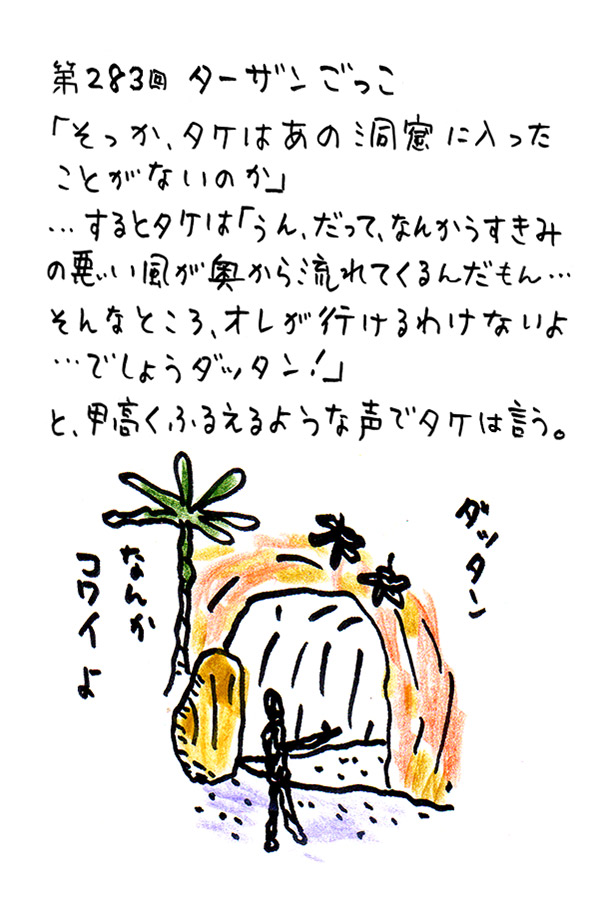 第283回 ターザンごっこ
「そっか、タケはあの洞窟に入った
ことがないのか」
…するとタケは「うん、だって、なんかうすきみ
の悪い風が奥から流れてくるんだもん…
そんなところ、オレが行けるわけないよ
…でしょうダッタン!」
と、甲高くふるえるような声でタケは言う。
ダッタン
なんか
コワイよ